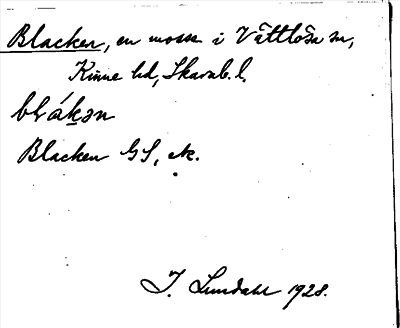 Blacken, en mosse i Vättlösa sn,
Kinne hd, Skarab. l.
blák̠ən
Blacken GS, ek.
I. Lundahl 1928.